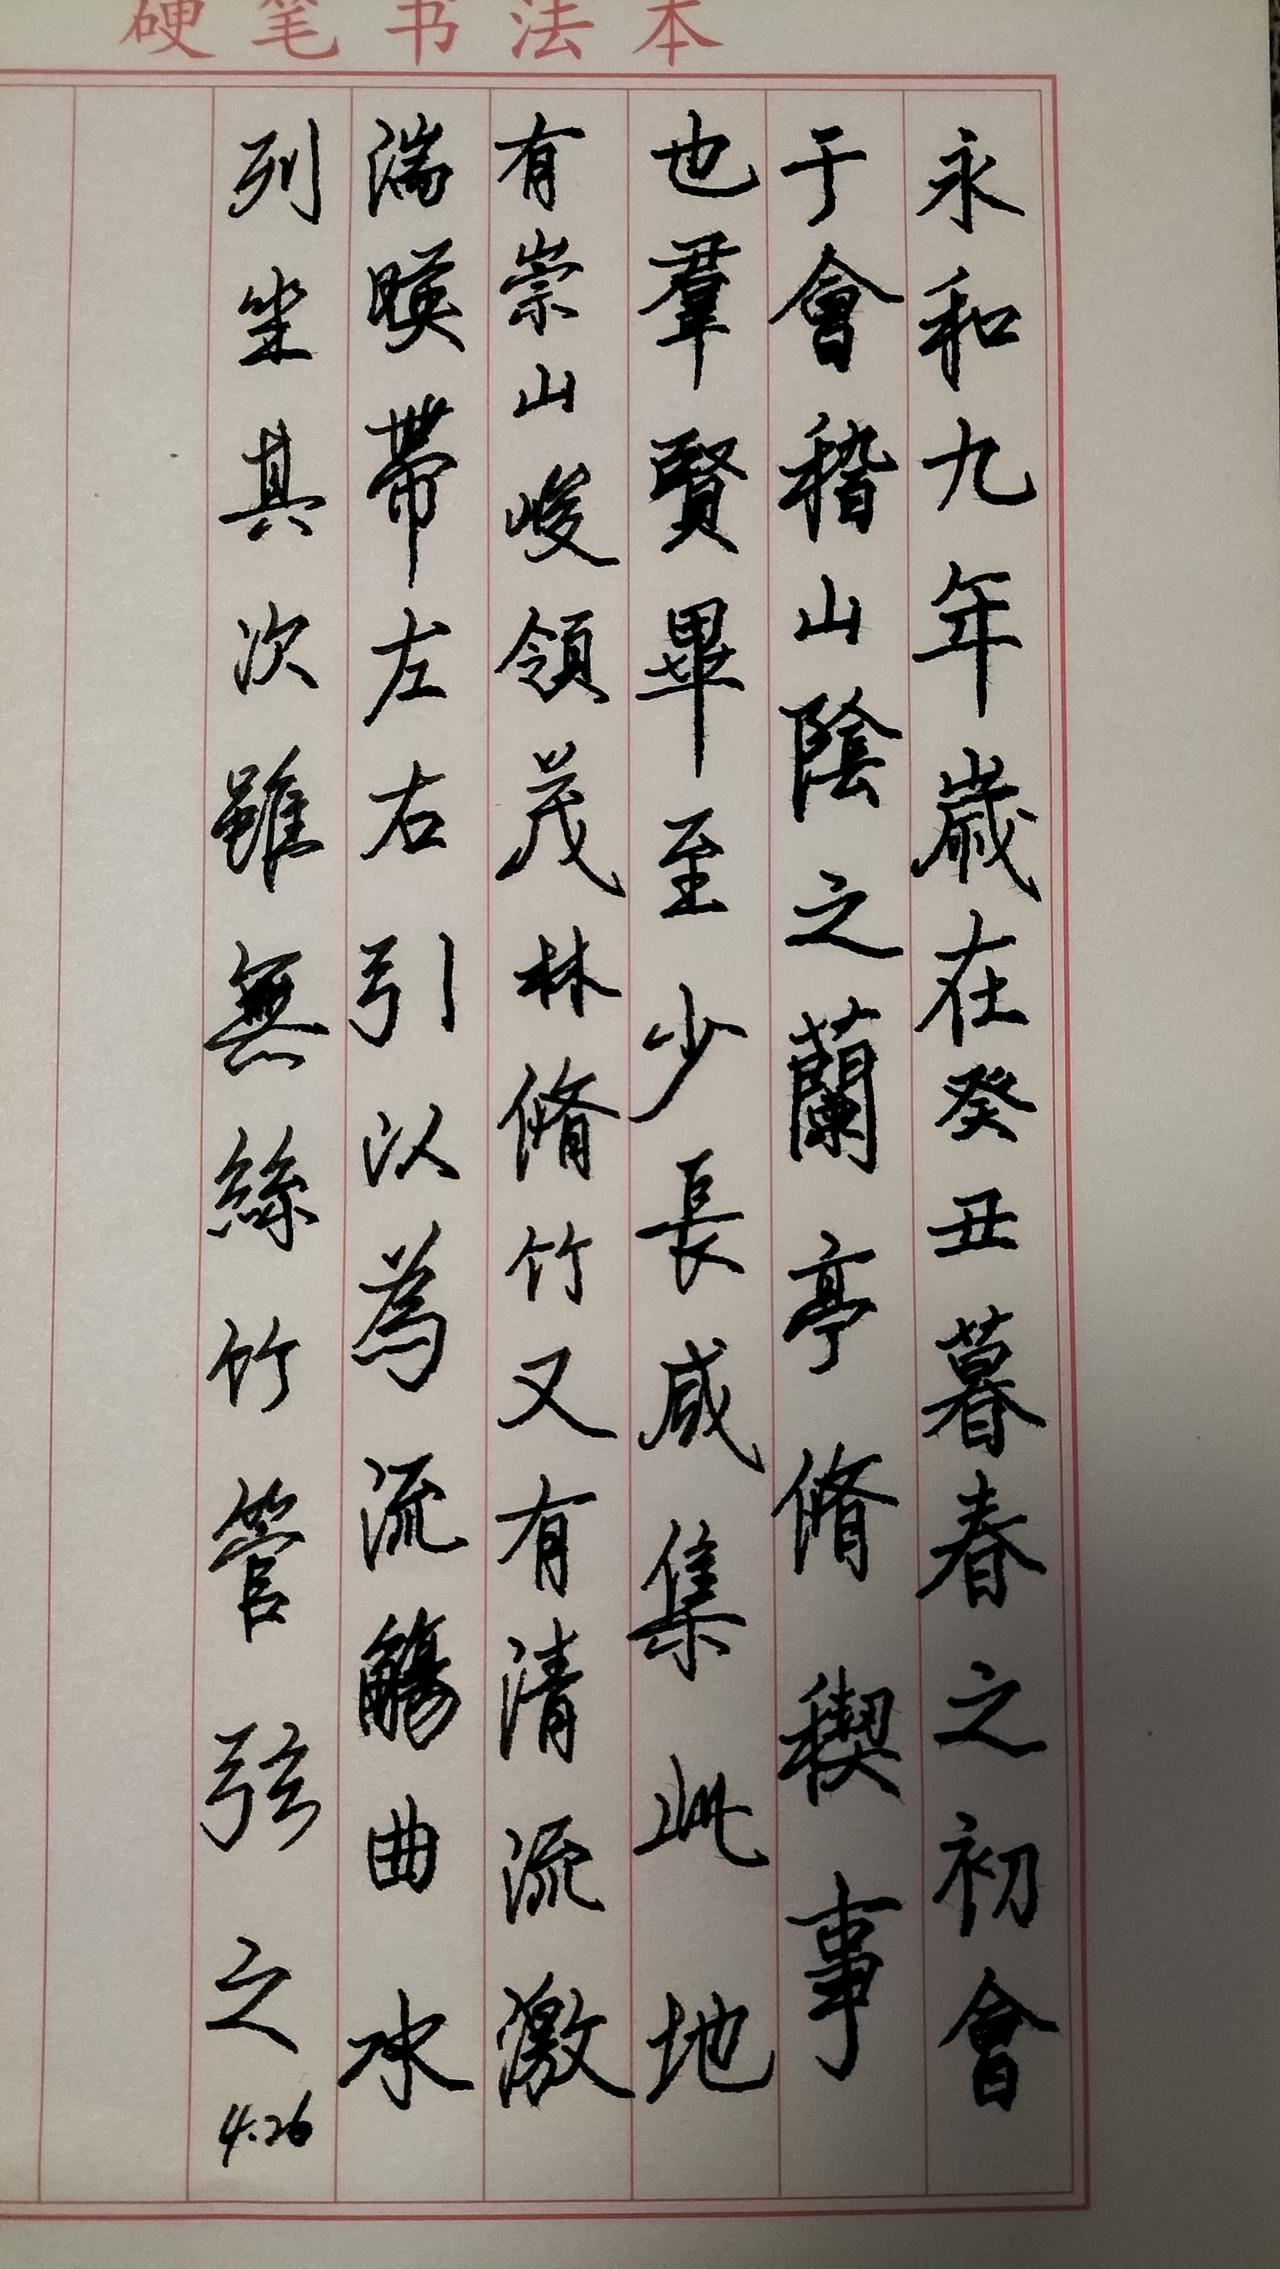 硬笔书法本
永和九年歲在癸丑暮春之初會
于會稽山陰之蘭亭脩稧事
也羣賢畢至少長咸集此地
有崇山峻領茂林脩竹又有清流激
湍暎帶左右引以為流觴曲水
列坐其次雖無絲竹管弦之
4.26